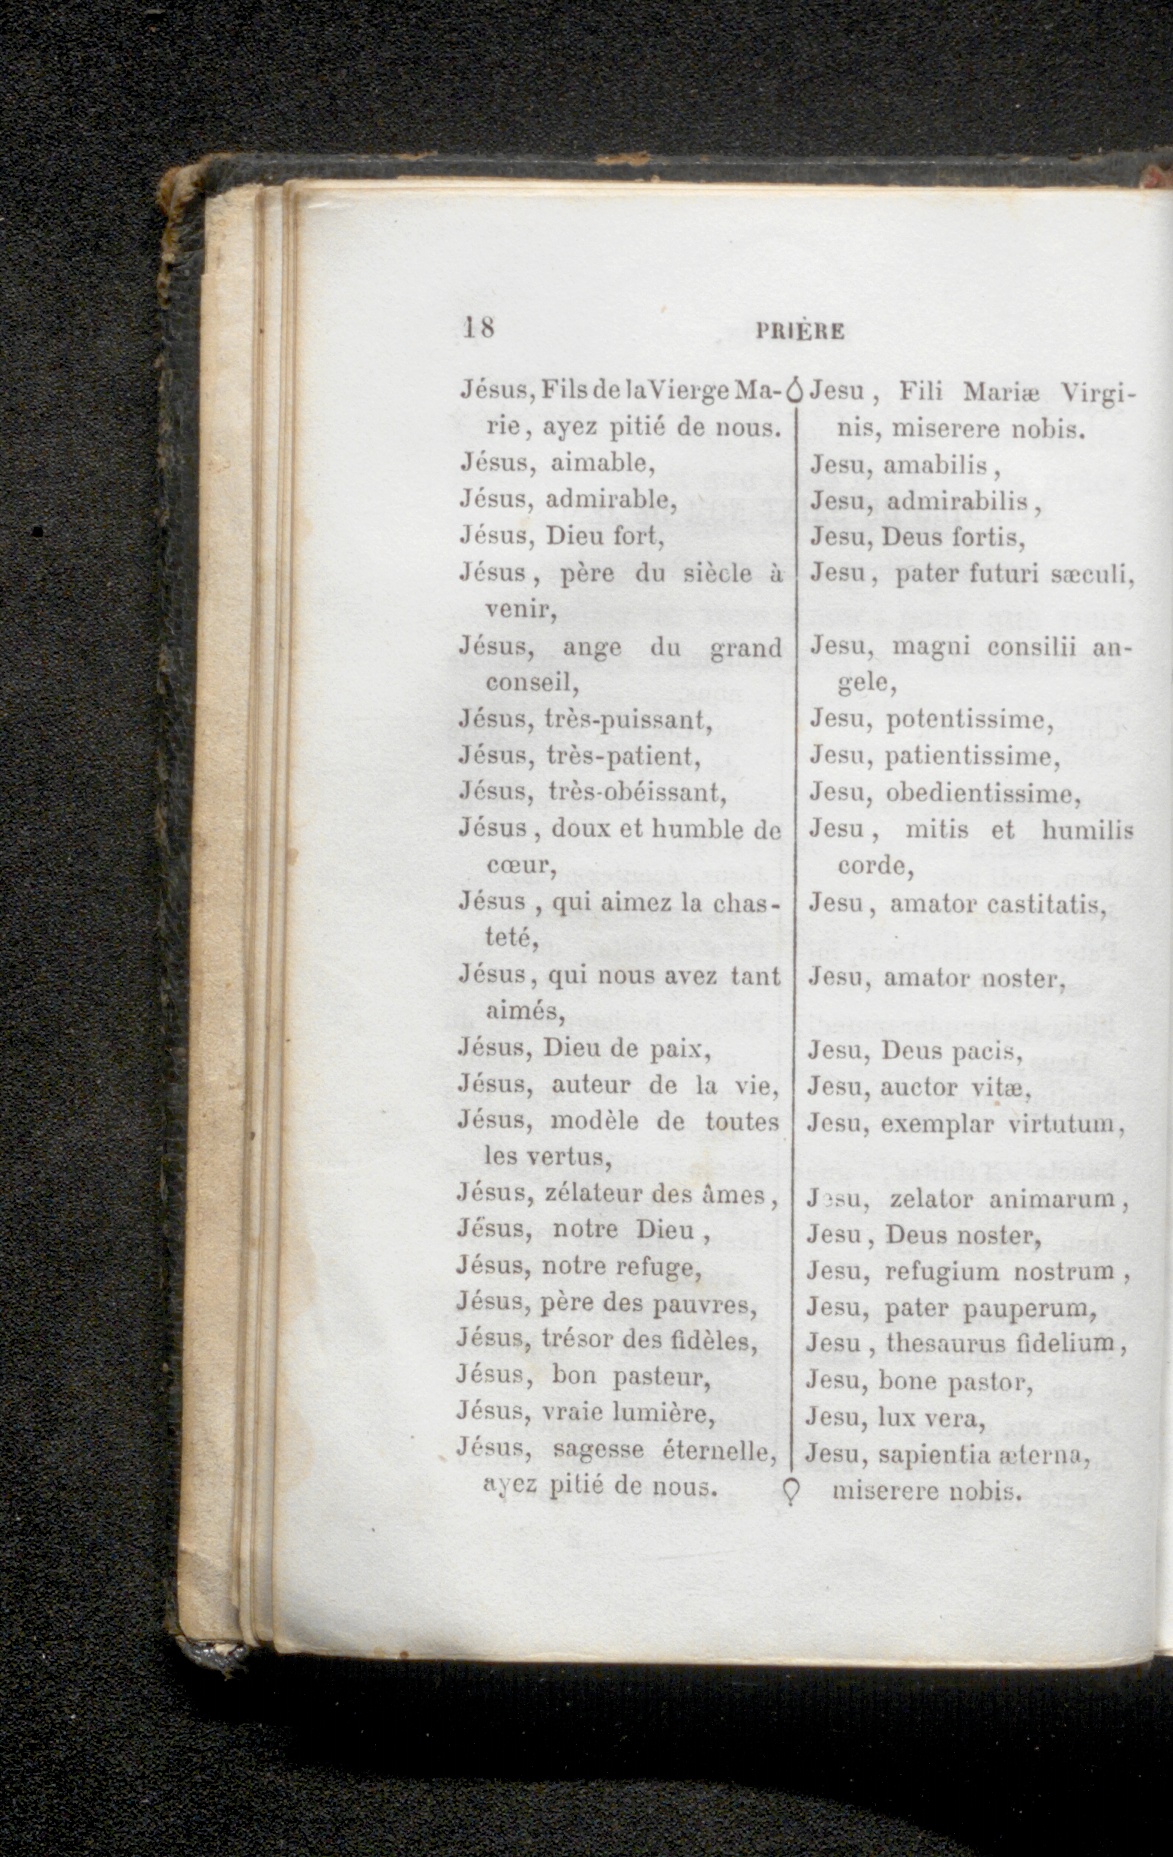 18 PRIÈRE
Jésus, Fils de la Vierge Ma-
rie, ayez pitié de nous.
Jésus, aimable,
Jésus, admirable,
Jésus, Dieu fort,
Jésus, père du siècle à
venir,
Jésus, ange du grand
conseil,
Jésus, très-puissant,
Jésus, très-patient,
Jésus, très-obéissant,
Jésus, doux et humble de
cœur,
Jésus, qui aimez la chas-
teté,
Jésus, qui nous avez tant
aimés,
Jésus, Dieu de paix,
Jésus, auteur de la vie,
Jésus, modèle de toutes
les vertus,
Jésus, zélateur des âmes,
Jésus, notre Dieu,
Jésus, notre refuge,
Jésus, père des pauvres,
Jésus, trésor des fidèles,
Jésus, bon pasteur,
Jésus, vraie lumière,
Jésus, sagesse éternelle,
ayez pitié de nous.
Jesu, Fili Mariæ Virgi-
nis, miserere nobis.
Jesu, amabilis,
Jesu, admirabilis,
Jesu, Deus fortis,
Jesu, pater futuri sæculi,
Jesu, magni consilii an-
gele,
Jesu, potentissime,
Jesu, patientissime,
Jesu, obedientissime,
Jesu, mitis et humilis
corde,
Jesu, amator castitatis,
Jesu, amator noster,
Jesu, Deus pacis,
Jesu, auctor vitæ,
Jesu, exemplar virtutum,
Jesu, zelator animarum,
Jesu, Deus noster,
Jesu, refugium nostrum,
Jesu, pater pauperum,
Jesu, thesaurus fidelium,
Jesu, bone pastor,
Jesu, lux vera,
Jesu, sapientia æterna,
miserere nobis.